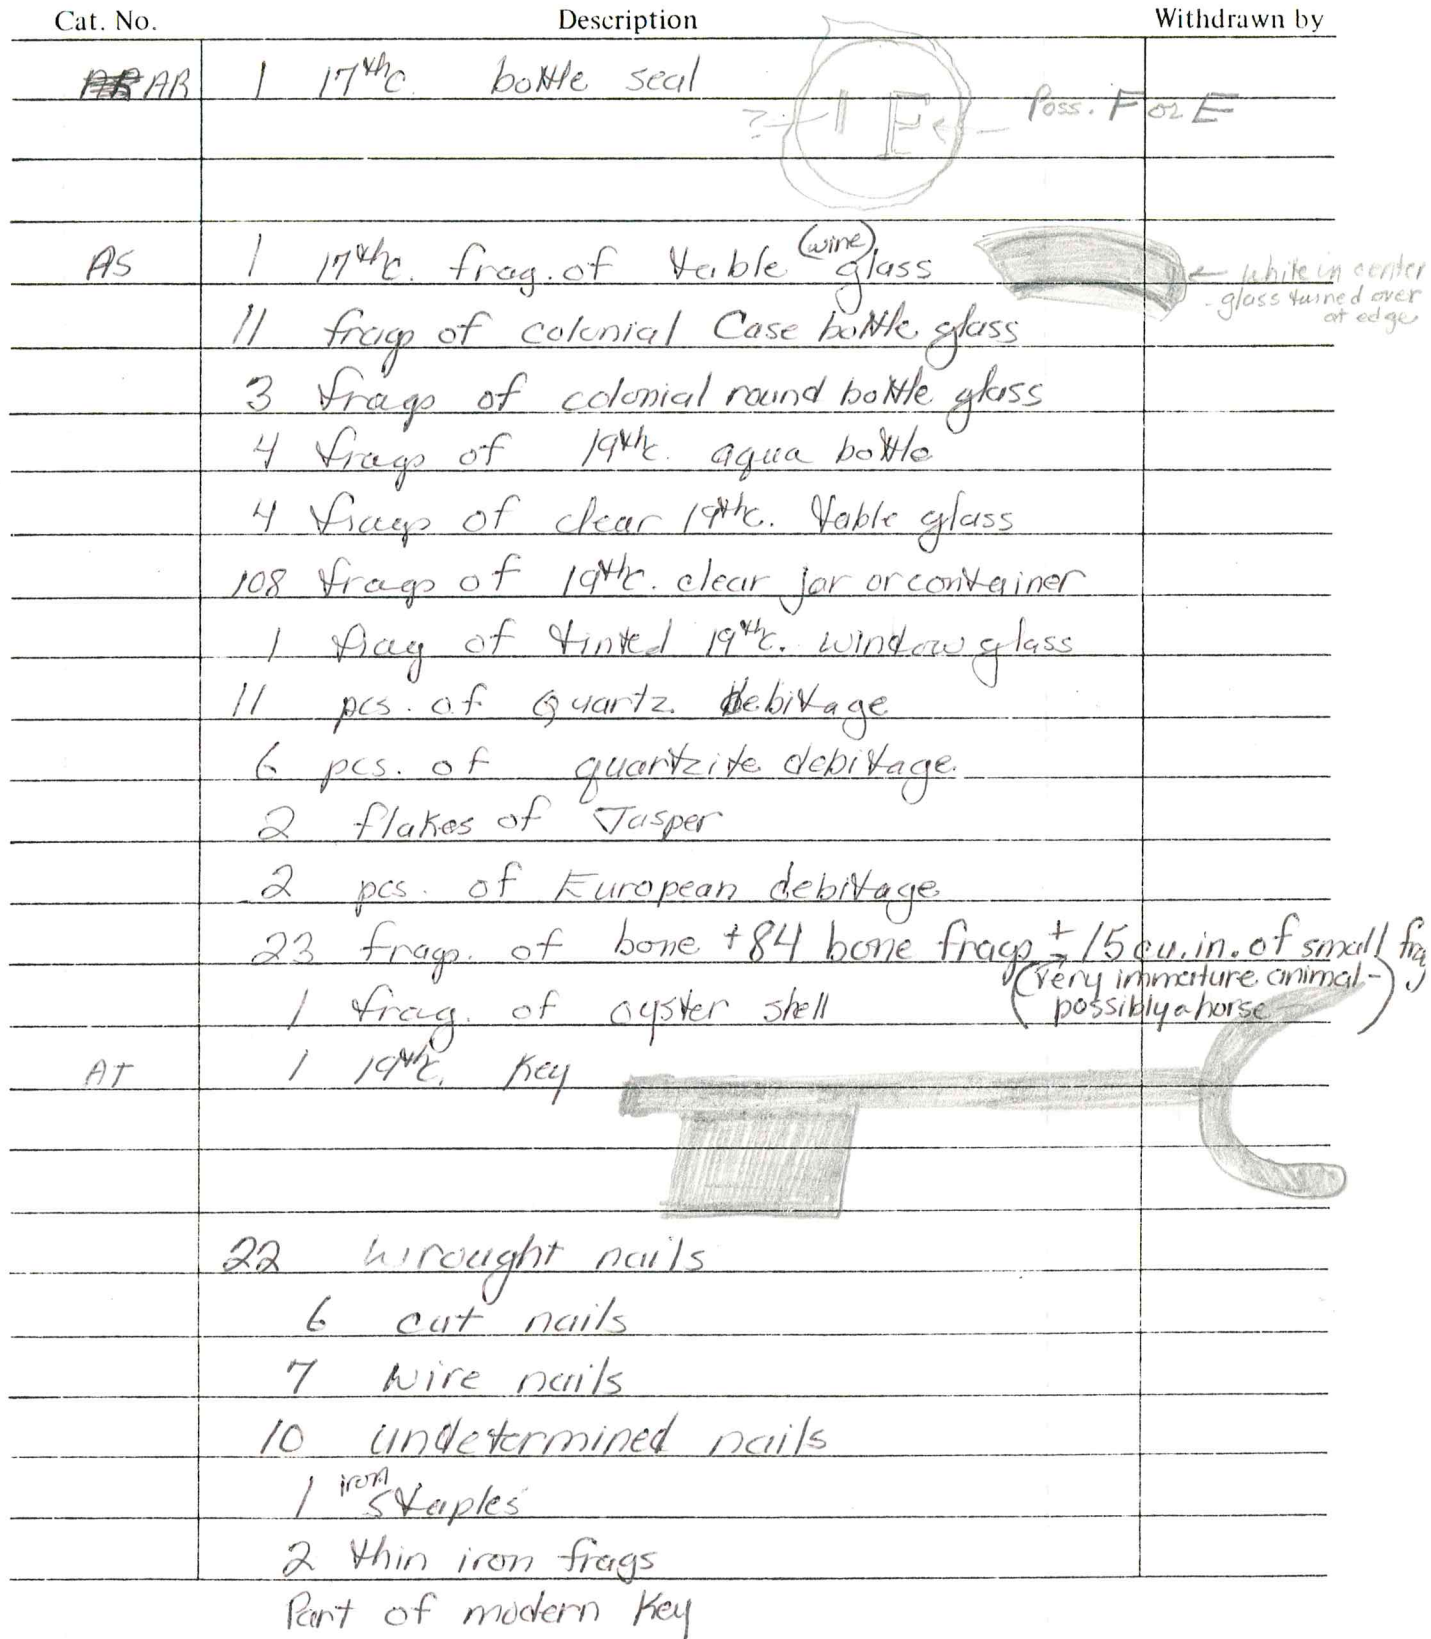 Cat. No. Description Withdrawn by
AR 1 17th c. bottle seal
? I E Poss. F or E
AS 1 17th c. frag. of table (wine) glass
← white in center
glass turned over
at edge
11 frags of colonial Case bottle glass
3 frags of colonial round bottle glass
4 frags of 19th c. aqua bottle
4 frags of clear 19th c. table glass
108 frags of 19th c. clear jar or container
1 frag of tinted 19th c. window glass
11 pcs. of Quartz debitage
6 pcs. of quartzite debitage
2 flakes of Jasper
2 pcs. of European debitage
23 frags. of bone +84 bone frags + 15 cu. in. of small frag
(very immature animal -
possibly a horse)
1 frag. of oyster shell
AT 1 19th c. Key
22 wrought nails
6 cut nails
7 wire nails
10 undetermined nails
1 iron staples
2 thin iron frags
Part of modern Key